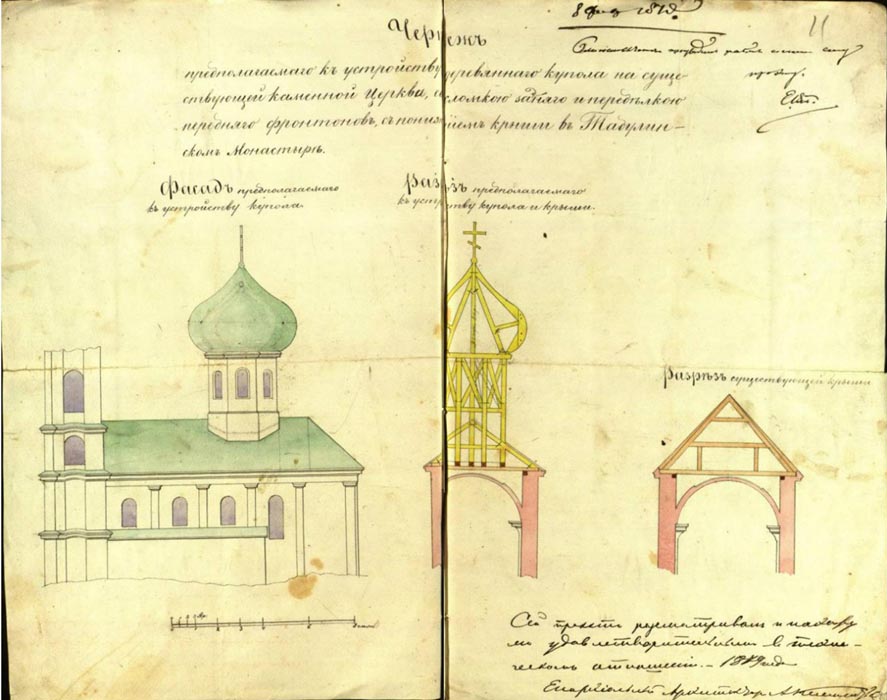 11
Чертежъ
предполагаемаго къ устройству деревяннаго купола на суще-
ствующей каменной Церкви, съ сломкою задняго и передѣлкою
передняго фронтоновъ, съ пониженіемъ крыши въ Тадулин-
скомъ Монастырѣ.
Фасадъ предполагаемаго
къ устройству купола.
Разрѣзъ предполагаемаго
къ устройству купола и крыши.
Разрѣзъ существующей крыши
Сей проектъ разсматривалъ и нахожу
его удовлетворительнымъ в техни-
ческомъ отношеніи. – 1879 года
Епархіальный Архитекторъ